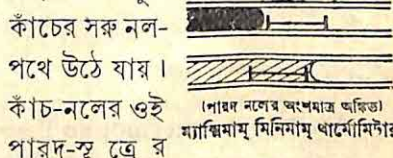 কাঁচের সরু নল-
পথে উঠে যায়।
কাঁচ-নলের ওই
পারদ-সূত্রের
(পারদ নলের অংশমাত্র অঙ্কিত)
ম্যাক্সিমাম্ মিনিমাম্ থার্মোমিটার